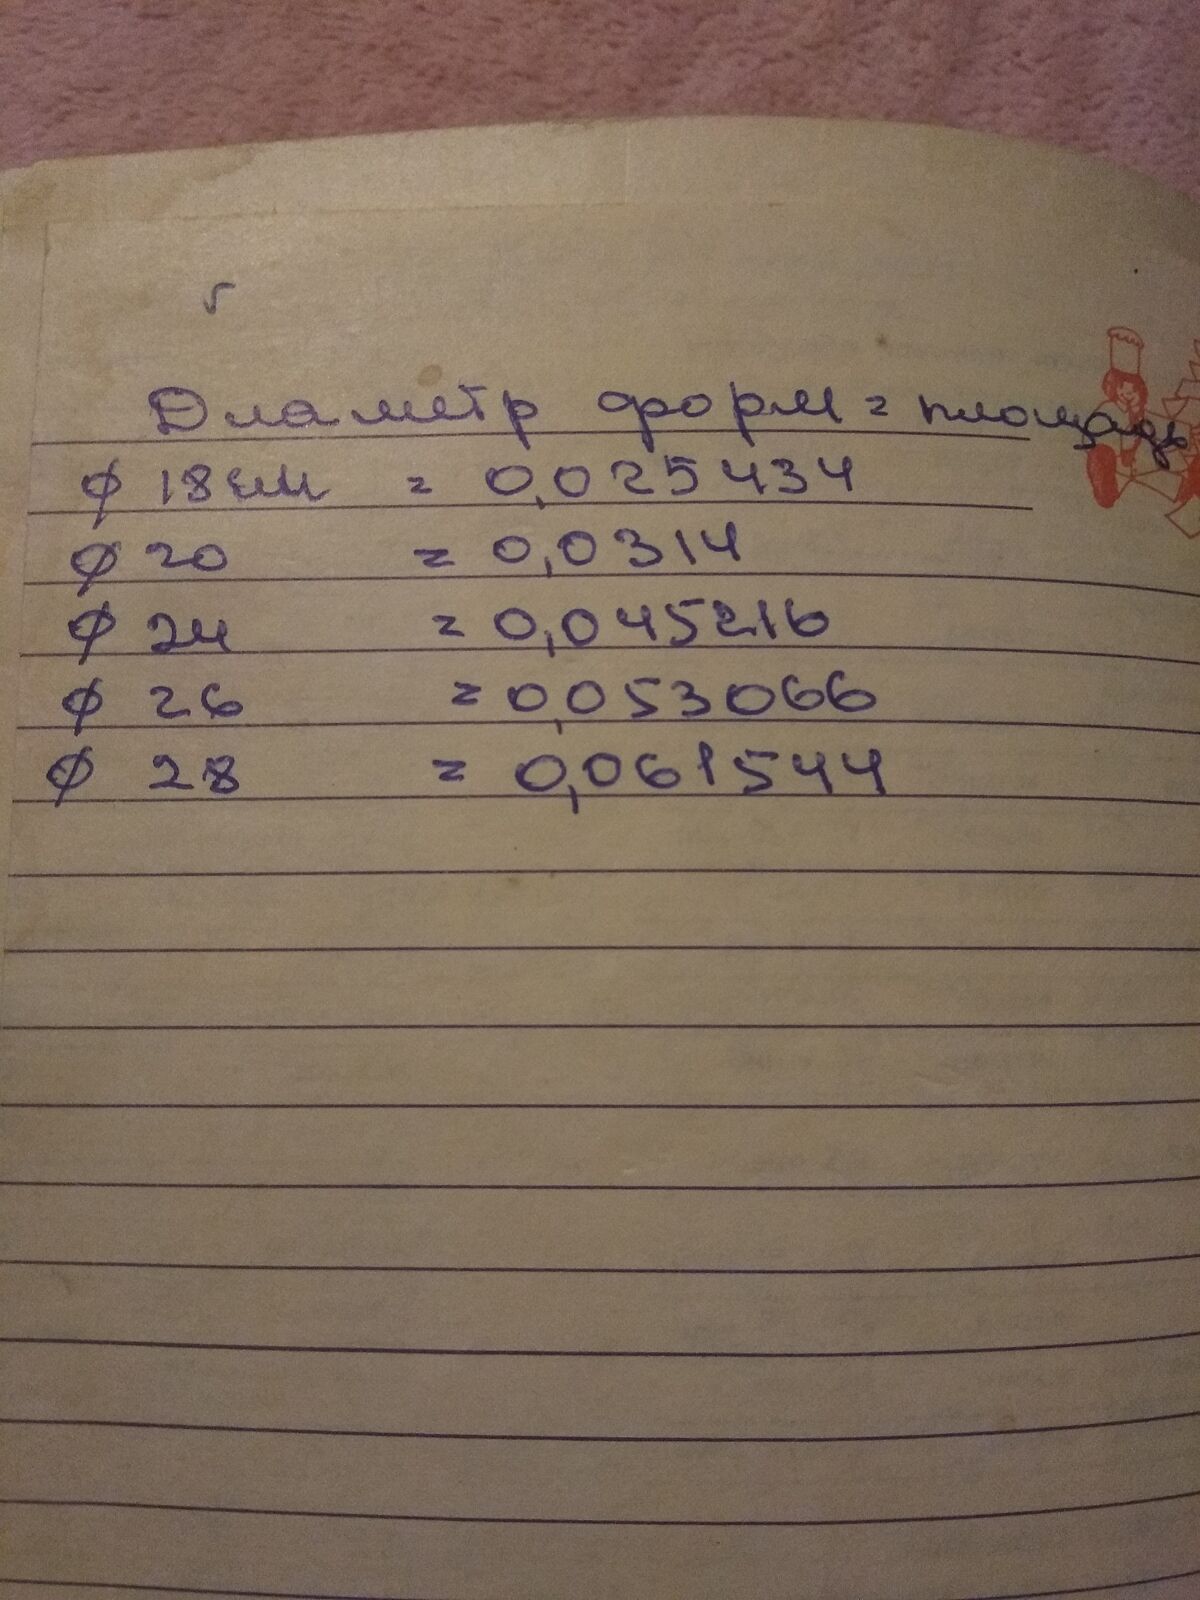 Диаметр форм = площадь
ϕ 18см = 0,025434
ϕ 20 = 0,0314
ϕ 24 = 0,045216
ϕ 26 = 0,053066
ϕ 28 = 0,061544